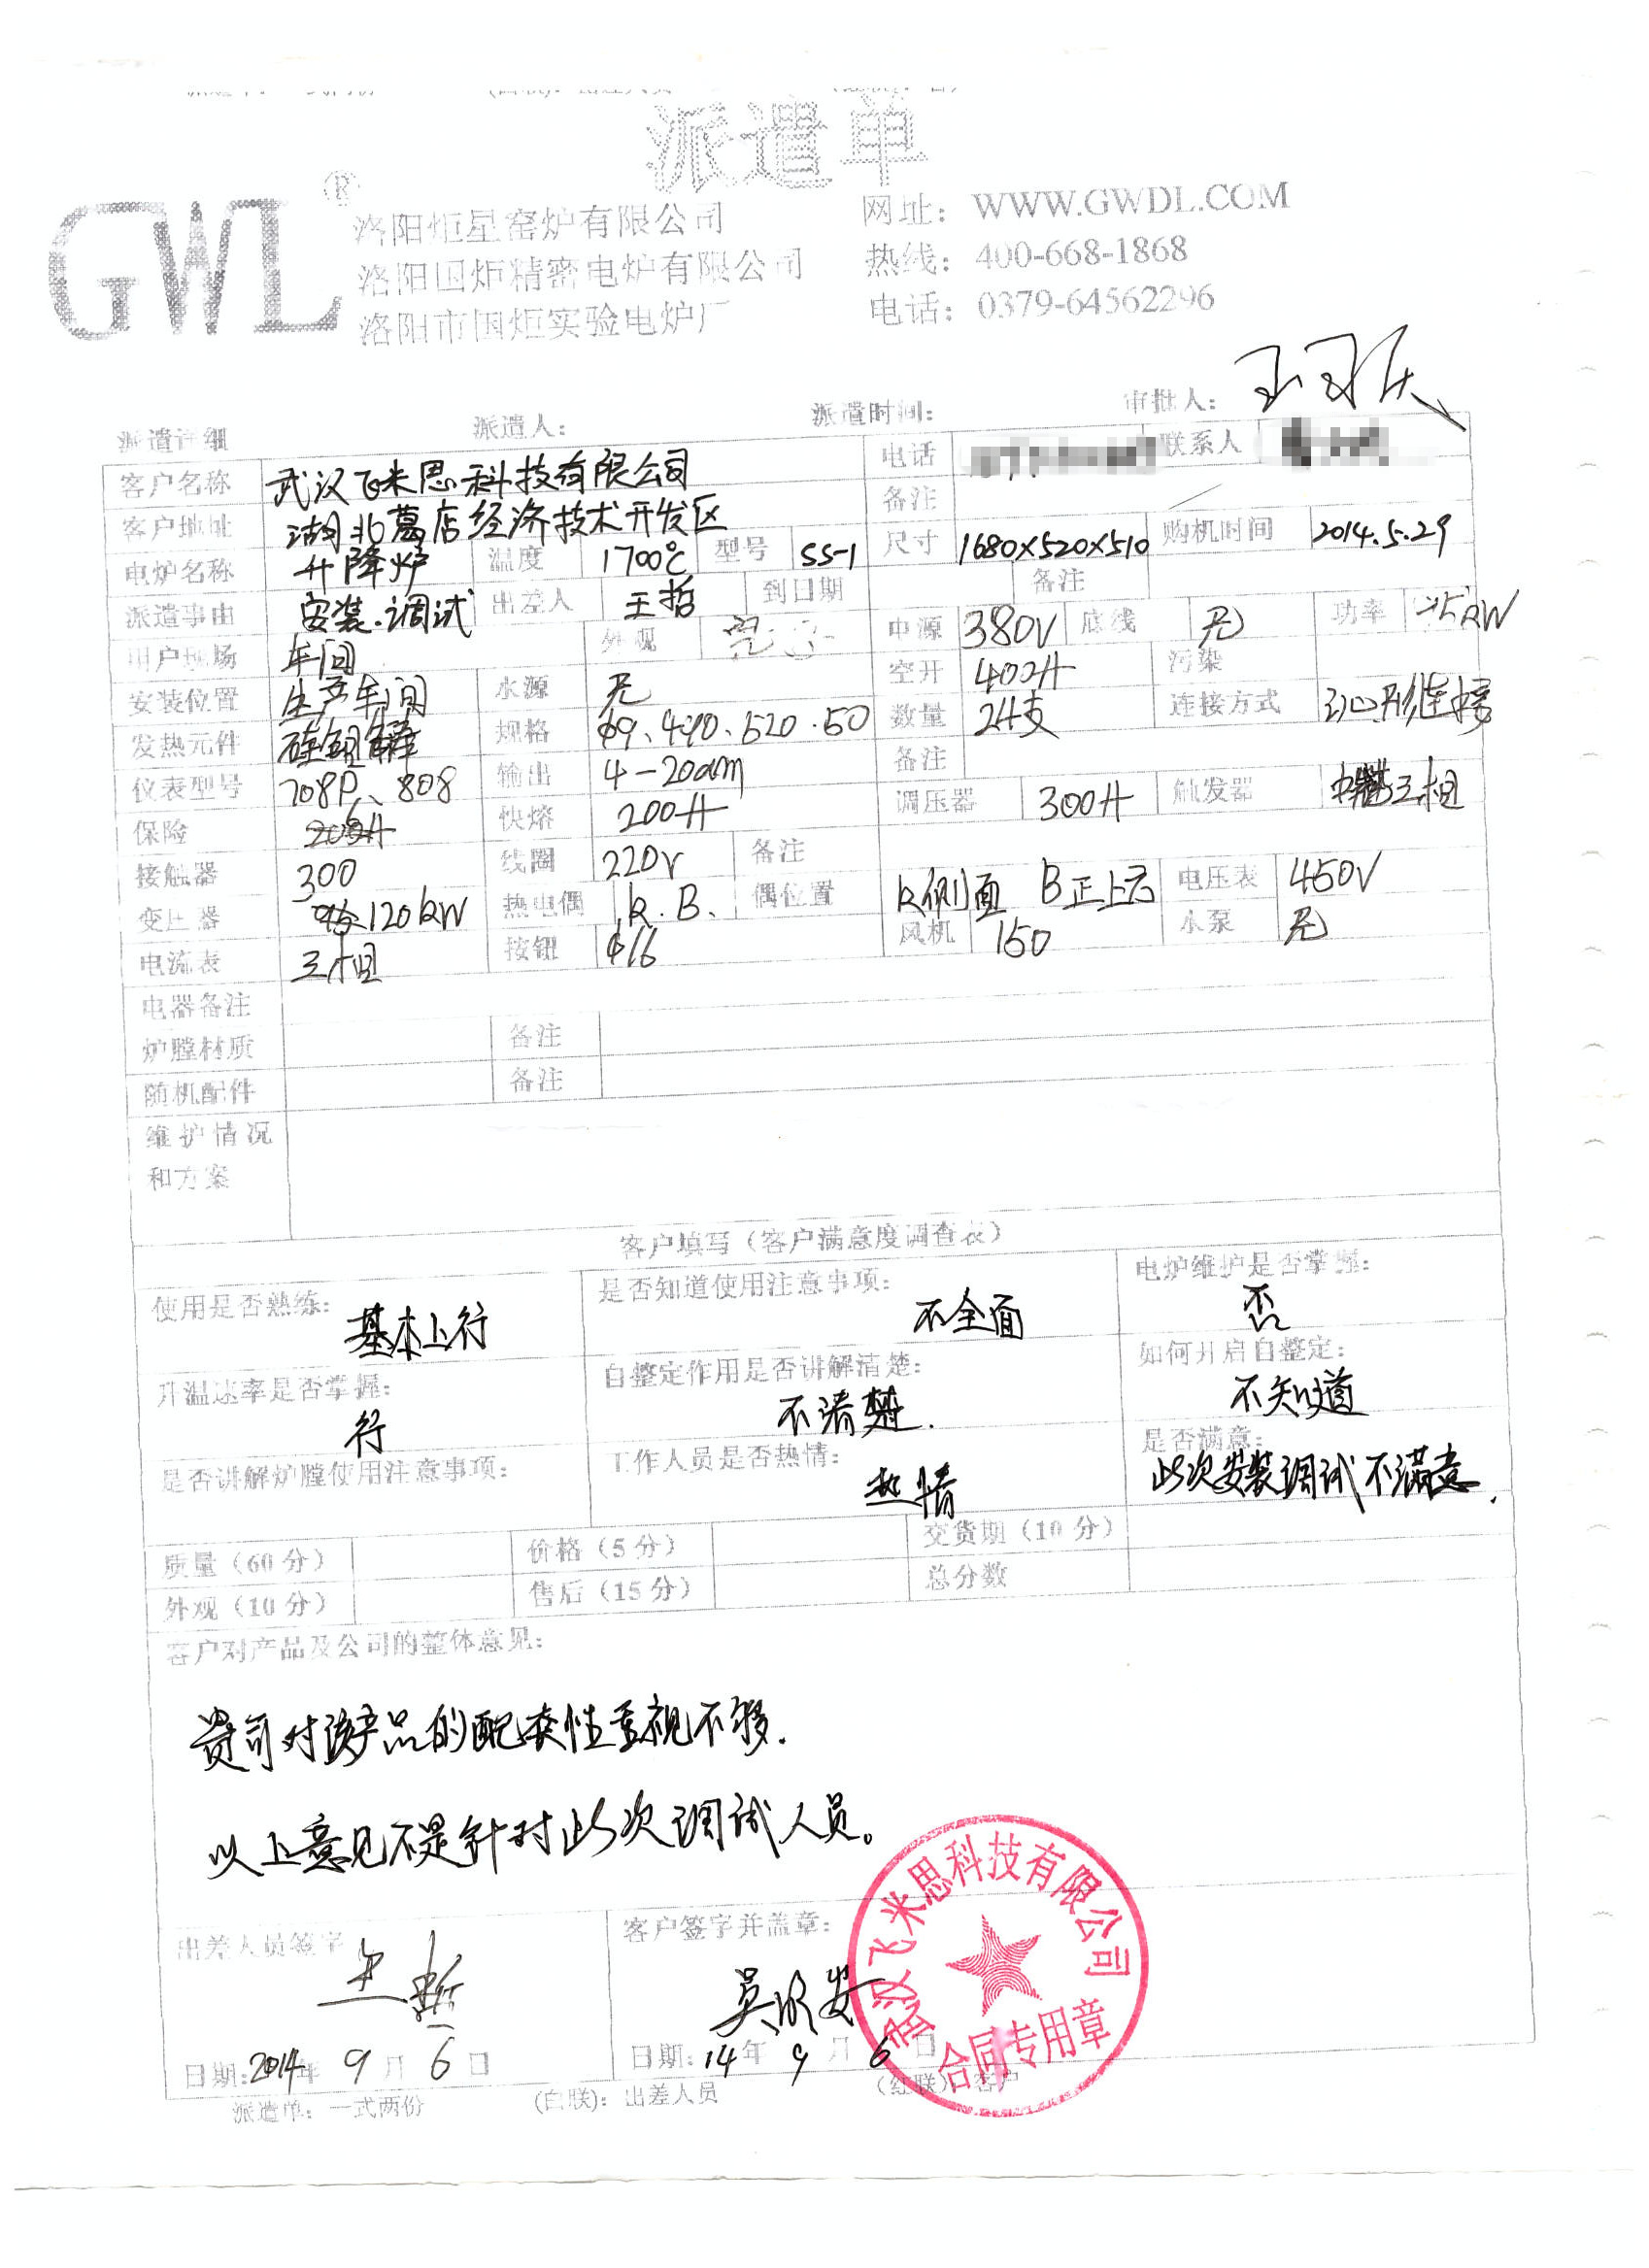 派遣单
GWL®
洛阳炬星窑炉有限公司
洛阳国炬精密电炉有限公司
洛阳市国炬实验电炉厂
网址：WWW.GWDL.COM
热线：400-668-1868
电话：0379-64562296
派遣详细 派遣人： 派遣时间： 审批人：
客户名称 武汉飞米思科技有限公司 电话 联系人
客户地址 湖北葛店经济技术开发区 备注
电炉名称 升降炉 温度 1700℃ 型号 SS-1 尺寸 1680×520×510 购机时间 2014.5.29
派遣事由 安装.调试 出差人 王哲 到日期 备注
用户现场 车间 外观 电源 380V 底线 无 功率
安装位置 生产车间 水源 无 空开 400A 污染
发热元件 硅钼棒 规格 φ9、490、520.50 数量 24支 连接方式
仪表型号 708P、808 输出 4-20am 备注
保险 快熔 200A 调压器 300A 触发器 三相
接触器 300 线圈 220V 备注
变压器 120KW 热电偶 k.B、 偶位置 k侧面 B正上方 电压表 450V
电流表 三相 按钮 φ16 风机 150 水泵 无
电器备注
炉膛材质 备注
随机配件 备注
维护情况
和方案
客户填写（客户满意度调查表）
使用是否熟练： 基本上行 是否知道使用注意事项： 不全面 电炉维护是否掌握： 否
升温速率是否掌握： 行 自整定作用是否讲解清楚： 不清楚. 如何开启自整定： 不知道
是否讲解炉膛使用注意事项： 工作人员是否热情： 热情 是否满意： 此次安装调试不满意.
质量（60分） 价格（5分） 交货期（10分）
外观（10分） 售后（15分） 总分数
客户对产品及公司的整体意见：
贵司对该产品的配套性重视不够.
以上意见不是针对此次调试人员。
出差人员签字 王哲 客户签字并盖章：
武汉飞米思科技有限公司
合同专用章
日期：2014年9月6日 日期：14年9月6日
派遣单：一式两份 (白联)：出差人员 (红联)：客户